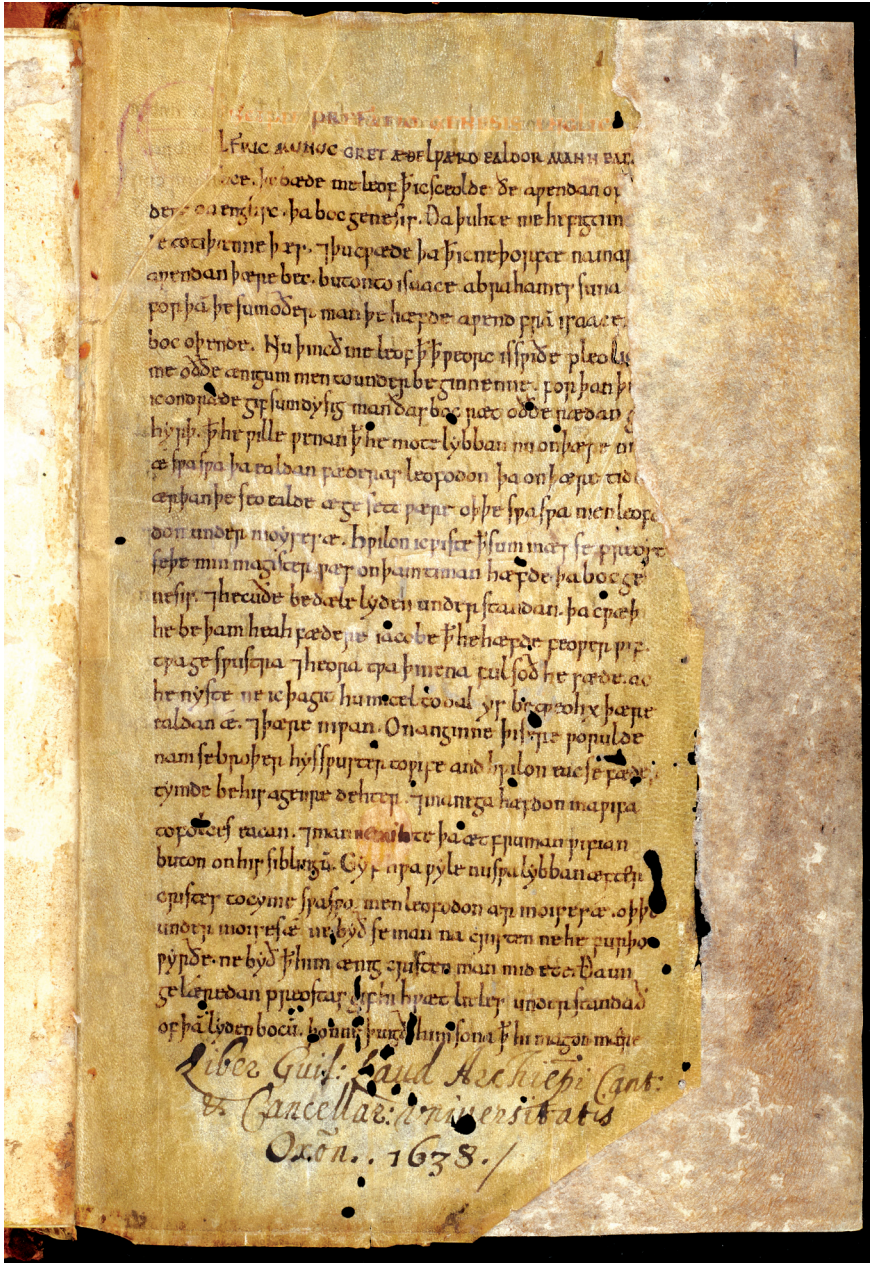 LFRIC MUNUC GRET ÆÐELǷÆRD EALDOR MANN EAD
þu bæde me leof ꝥ ic sceolde ðe aƿendan of
on englisc. þa boc genesis. Ða þuhte me hefigtim
e to tiþienne þæs. ⁊ þu cƿæde þa ꝥ ic ne þorfte na mar
aƿendan þære bec. buton to isaace abrahames suna
for þā þe sum oðer man þe hæfde aƿend frā isaace.
boc oþ ende. Nu þincð me leof ꝥ ꝥ ƿeorc is sƿiðe pleolic
me oððe ænigum men to under beginnenne. for þan þe
ic ondræde gif sum dysig man ðas boc ræt oððe rædan g
hyrþ. ꝥ he ƿille ƿenan ꝥ he mote lybban nu on þære ni
æ sƿa sƿa þa ealdan fæderas leofodon þa on þære tid
ær þan þe seo ealde æ ge sett ƿære oþþe sƿa sƿa men leofo
don under moyses æ. hƿilon ic ƿiste ꝥ sum mæsse preost
se þe min magister ƿæs on þam timan hæfde þa boc ge
nesis. ⁊ he cuðe be dæle lyden under standan. þa cƿæþ
he be þam heah fædere iacobe ꝥ he hæfde feoƿer ƿif.
tƿa ge sƿustra ⁊ heora tƿa þinena ful soð he sæde. ac
he nyste ne ic þa git hu micel todal ys be tƿeohx þære
ealdan æ. ⁊ þære niƿan. On anginne þisere ƿorulde
nam se broþer hys sƿuster to ƿife and hƿilon eac se fæder
tymde be his agenre dehter. ⁊ manega hæfdon ma ƿifa
to folces eacan. ⁊ man ne mihte þa æt fruman ƿifian
buton on his siblingū. Gyf hƿa ƿyle nu sƿa lybban æfter
cristes tocyme sƿa sƿa men leofodon ær moises æ. oþþe
under moises æ ne byð se man na cristen ne he furþon
ƿyrðe. ne byð ꝥ him ænig cristen man mid ete. Ða un
gelæredan preostas gif hi hƿæt litles under standað
of þā lyden bocū. þonne þingð him sona ꝥ hi magon mære
Liber Guil: Laud Archiep̄i Cant:
& Cancellar: Vniuersitatis
Oxōn.. 1638./